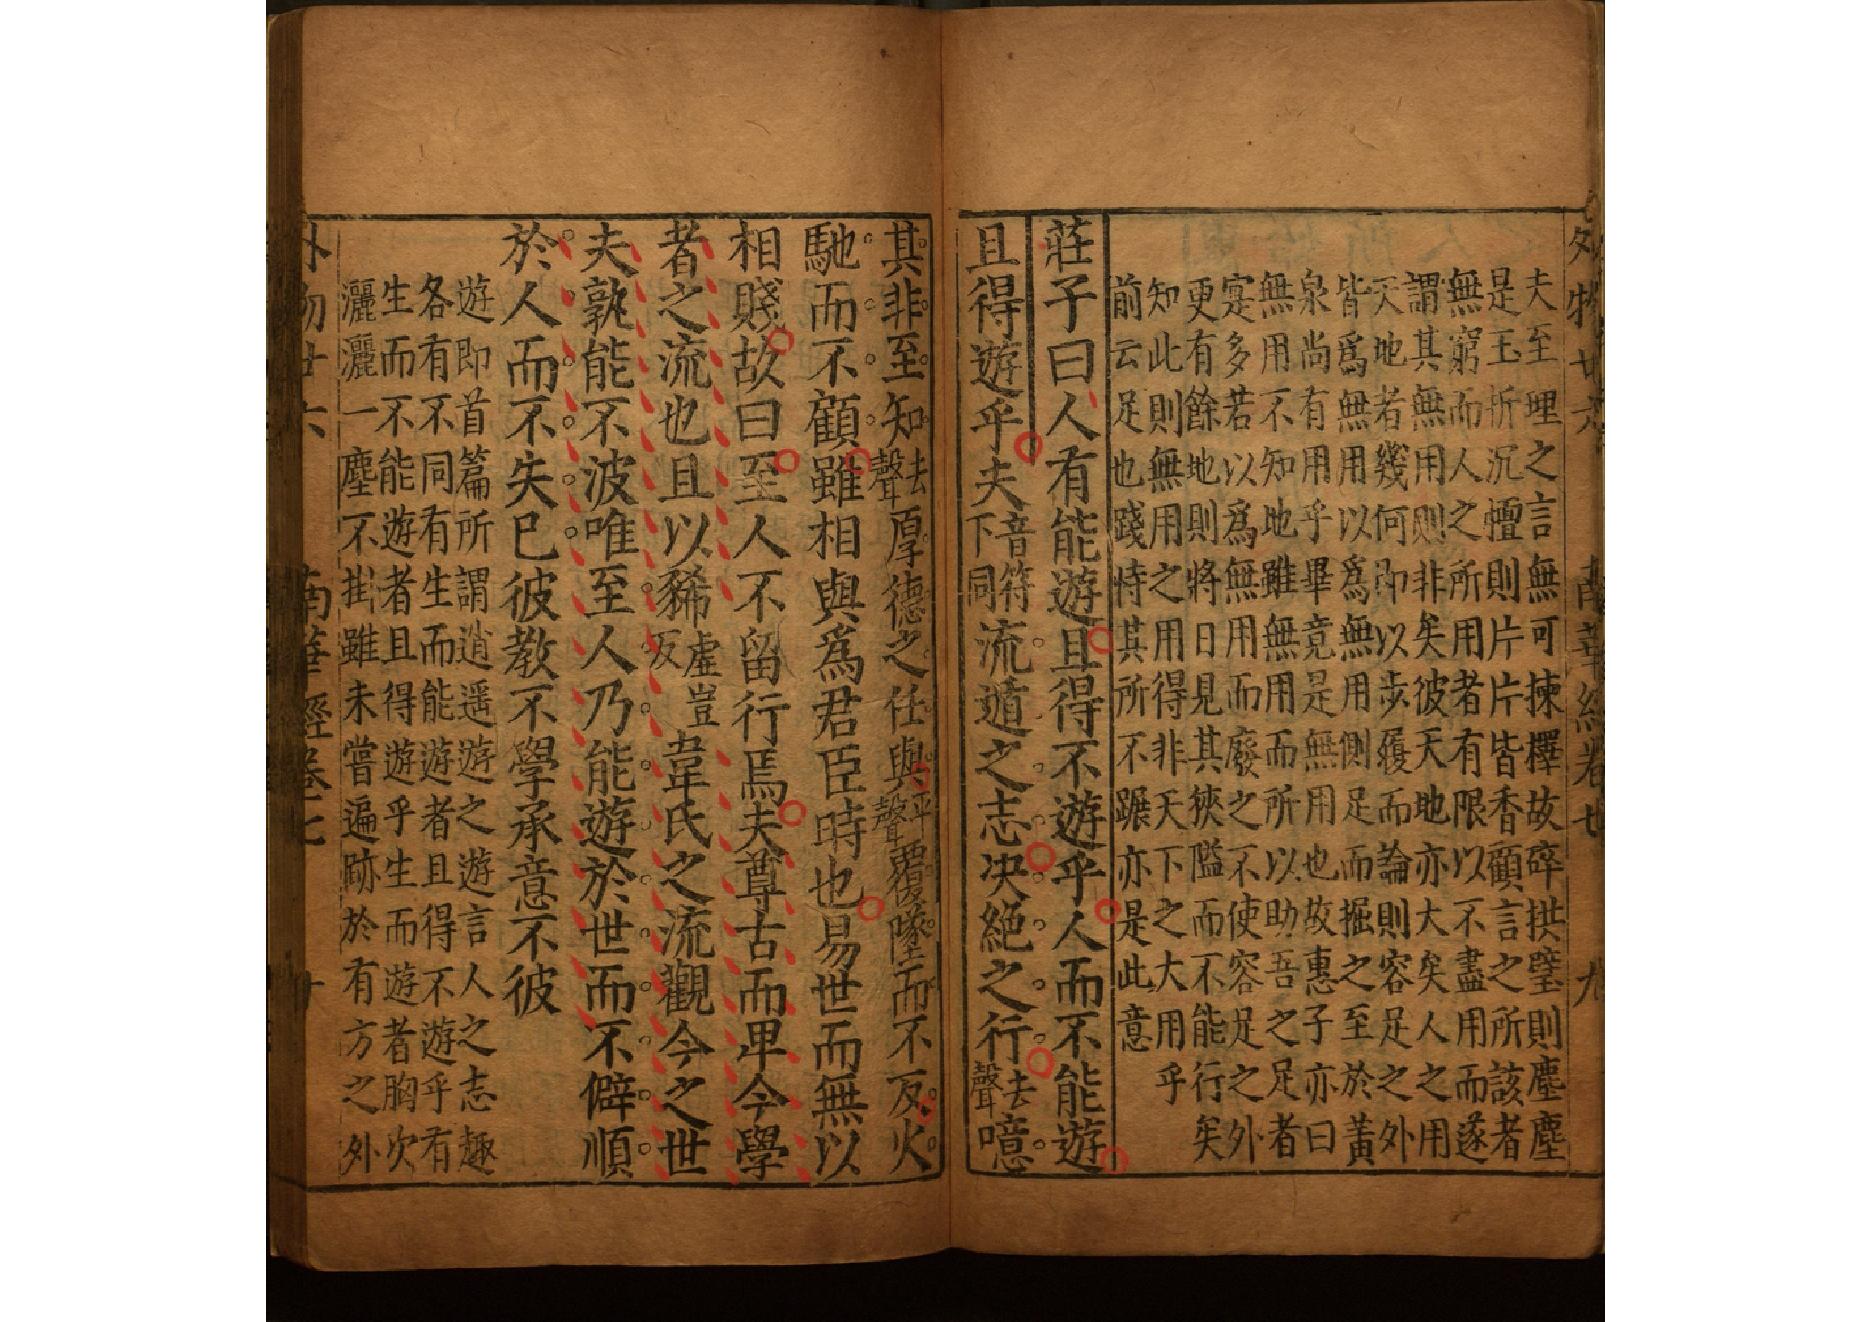 外物廿六 南華經卷七 九
夫至理之言無可揀擇故碎拱璧則塵塵
是玉折沉檀則片片皆香顧言之所該者
無窮而人之所用者有限以不盡用而遂
謂其無用則非矣彼天地亦大矣人之用
天地者幾何即以步履而論則容足之外
皆爲無用以爲無用側足而掘之至於黃
泉尚有用乎畢竟是無用也故惠子亦曰
無用不知地雖無用而所以助吾之足者
寔多若以爲無用而廢之不使容足之外
更有餘地則將日見其狹隘而不能行矣
知此則無用之用得非天下之大用乎
前云足也踐恃其所不蹍亦是此意
莊子曰人有能遊且得不遊乎人而不能遊
且得遊乎夫音符下同流遁之志決絕之行去聲噫
其非至知去聲厚德之任與平聲覆墜而不反火
馳而不顧雖相與爲君臣時也易世而無以
相賤故曰至人不留行焉夫尊古而卑今學
者之流也且以豨虛豈反韋氏之流觀今之世
夫孰能不波唯至人乃能遊於世而不僻順
於人而不失己彼教不學承意不彼
遊即首篇所謂逍遥遊之遊言人之志趣
各有不同有生而能遊者且得不遊乎有
生而不能遊者且得遊乎生而遊者胸次
灑灑一塵不掛雖未嘗遍跡於有方之外
外物廿六 南華經卷七 十